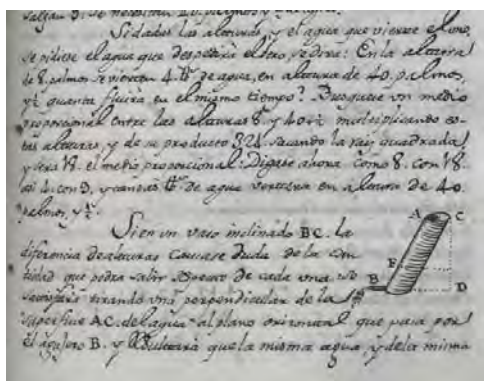 salgan 9. se necesitan 40. palmos, y
Si dadas las alturas, y el agua que vierte el uno,
se pidiese el agua que despedirá el otro, se dirá: En la altura
de 8. palmos se vierten 4. tt de agua, en altura de 40. palmos,
y ½ quanta fluirá en el mismo tiempo? Busquese un medio
proporcional entre las alturas 8. y 40½ multiplicando es-
tas alturas, y de su producto 324. sacando la raiz quadrada
y será 18. el medio proporcional: Digase ahora como 8. con 18.
asi 4. con 9, y tantas tt de agua vertera en altura de 40.
palmos, y ½.
Si en un vaso inclinado BC. la
diferencia de alturas causase duda de la can
tidad que podra salir de cada una, se
satisfará tirando una perpendicular de la
superficie AC. del agua al plano orizontal que pasa por
el agujero B. y resultará que la misma agua, y de la misma
A C
E
B D